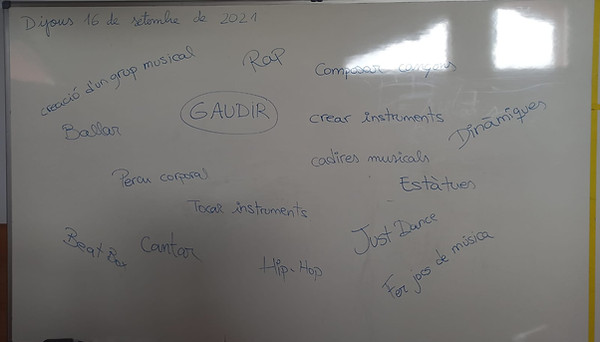 Dijous 16 de setembre de 2021
creació d'un grup musical
Rap
Composar cançons
Ballar
GAUDIR
crear instruments
Dinàmiques
cadires musicals
Percu corporal
Estàtues
Tocar instruments
Just Dance
Beat Box
Cantar
Hip-Hop
Fer jocs de música